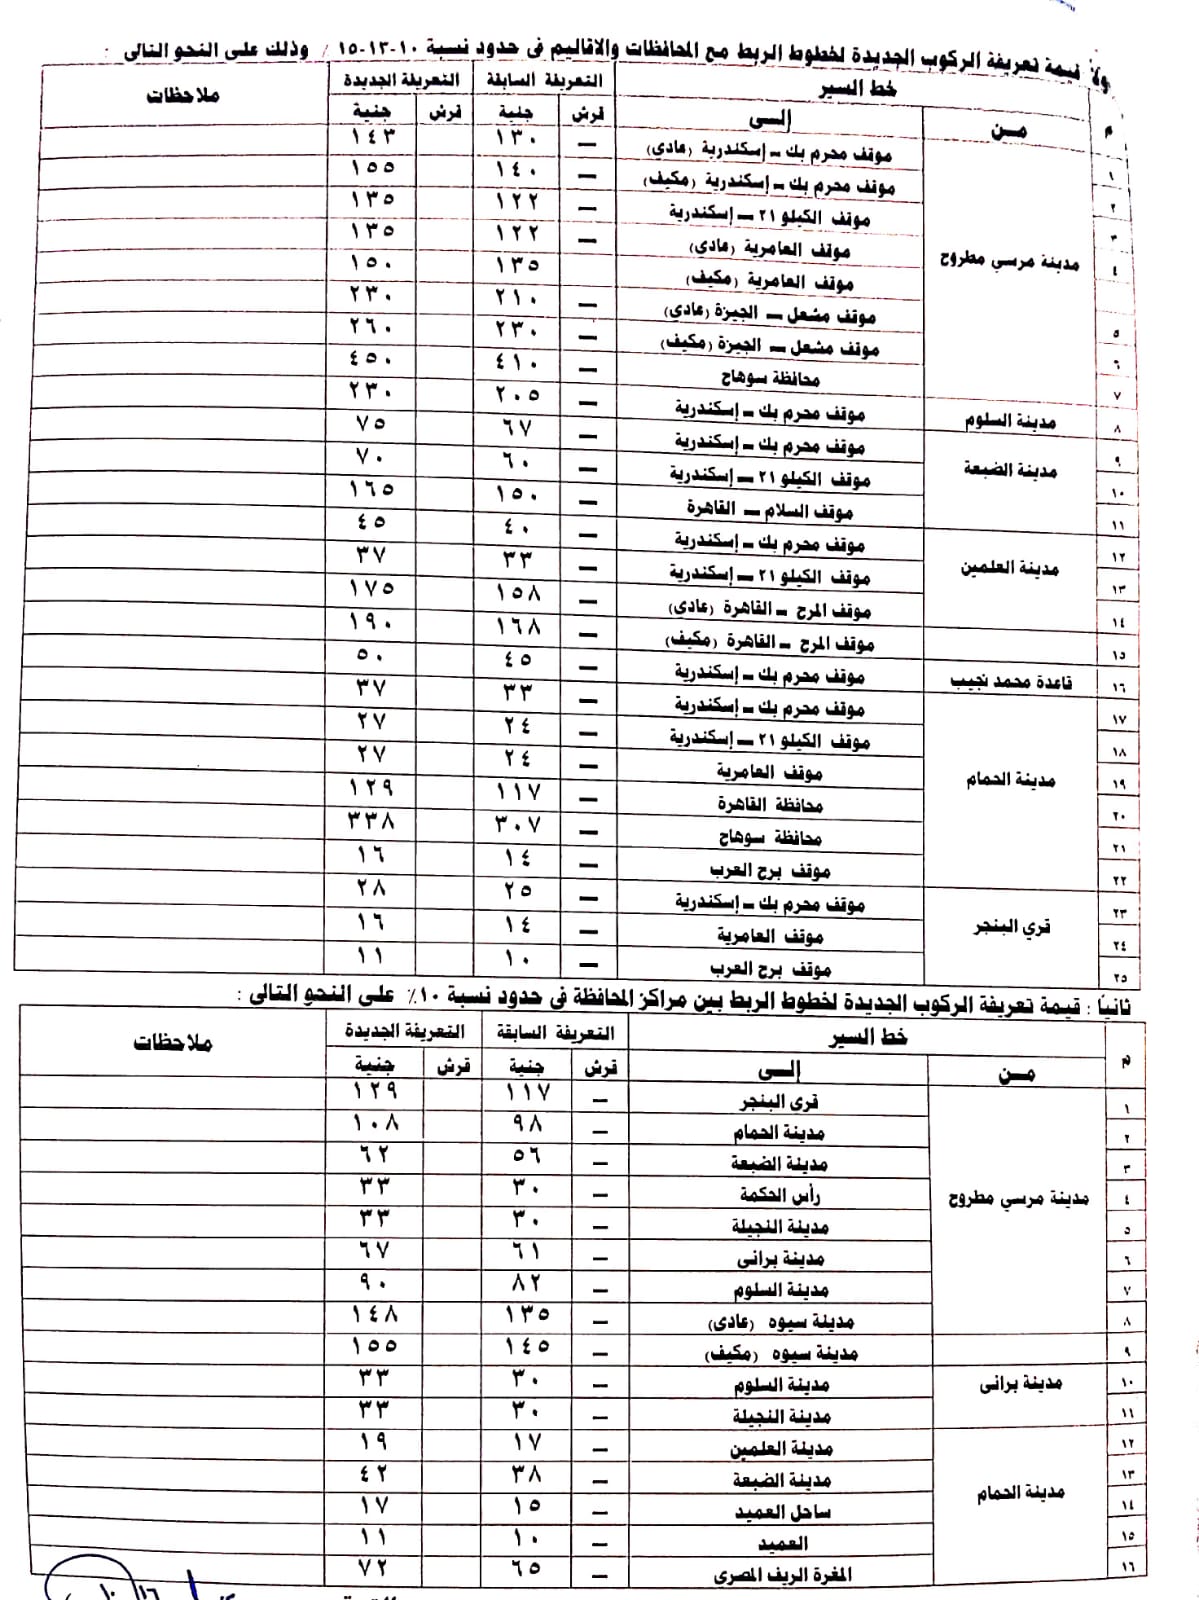 ولاً: قيمة تعريفة الركوب الجديدة لخطوط الربط مع المحافظات والاقاليم فى حدود نسبة ١٠-١٣-١٥ ٪ وذلك على النحو التالى :
م خط السير التعريفة السابقة التعريفة الجديدة ملاحظات
مـن إلـى قرش جنية قرش جنية
١ مدينة مرسي مطروح موقف محرم بك – إسكندرية (عادى) – ١٣٠ ١٤٣
٢ موقف محرم بك – إسكندرية (مكيف) – ١٤٠ ١٥٥
٣ موقف الكيلو ٢١ – إسكندرية – ١٢٢ ١٣٥
٤ موقف العامرية (عادى) – ١٢٢ ١٣٥
موقف العامرية (مكيف) ١٣٥ ١٥٠
٥ موقف مشعل – الجيزة (عادى) – ٢١٠ ٢٣٠
٦ موقف مشعل – الجيزة (مكيف) – ٢٣٠ ٢٦٠
٧ محافظة سوهاج – ٤١٠ ٤٥٠
٨ مدينة السلوم موقف محرم بك – إسكندرية – ٢٠٥ ٢٣٠
٩ مدينة الضبعة موقف محرم بك – إسكندرية – ٦٧ ٧٥
١٠ موقف الكيلو ٢١ – إسكندرية – ٦٠ ٧٠
١١ موقف السلام – القاهرة – ١٥٠ ١٦٥
١٢ مدينة العلمين موقف محرم بك – إسكندرية – ٤٠ ٤٥
١٣ موقف الكيلو ٢١ – إسكندرية – ٣٣ ٣٧
١٤ موقف المرج – القاهرة (عادى) – ١٥٨ ١٧٥
١٥ موقف المرج – القاهرة (مكيف) – ١٦٨ ١٩٠
١٦ قاعدة محمد نجيب موقف محرم بك – إسكندرية – ٤٥ ٥٠
١٧ مدينة الحمام موقف محرم بك – إسكندرية – ٣٣ ٣٧
١٨ موقف الكيلو ٢١ – إسكندرية – ٢٤ ٢٧
١٩ موقف العامرية – ٢٤ ٢٧
٢٠ محافظة القاهرة – ١١٧ ١٢٩
٢١ محافظة سوهاج – ٣٠٧ ٣٣٨
٢٢ موقف برج العرب – ١٤ ١٦
٢٣ قري البنجر موقف محرم بك – إسكندرية – ٢٥ ٢٨
٢٤ موقف العامرية – ١٤ ١٦
٢٥ موقف برج العرب – ١٠ ١١
ثانياً : قيمة تعريفة الركوب الجديدة لخطوط الربط بين مراكز المحافظة فى حدود نسبة ١٠٪ على النحو التالى :
م خط السير التعريفة السابقة التعريفة الجديدة ملاحظات
مـن إلـى قرش جنية قرش جنية
١ مدينة مرسي مطروح قرى البنجر – ١١٧ ١٢٩
٢ مدينة الحمام – ٩٨ ١٠٨
٣ مدينة الضبعة – ٥٦ ٦٢
٤ رأس الحكمة – ٣٠ ٣٣
٥ مدينة النجيلة – ٣٠ ٣٣
٦ مدينة برانى – ٦١ ٦٧
٧ مدينة السلوم – ٨٢ ٩٠
٨ مدينة سيوه (عادى) – ١٣٥ ١٤٨
٩ مدينة سيوه (مكيف) – ١٤٥ ١٥٥
١٠ مدينة برانى مدينة السلوم – ٣٠ ٣٣
١١ مدينة النجيلة – ٣٠ ٣٣
١٢ مدينة الحمام مدينة العلمين – ١٧ ١٩
١٣ مدينة الضبعة – ٣٨ ٤٢
١٤ ساحل العميد – ١٥ ١٧
١٥ العميد – ١٠ ١١
١٦ المغرة الريف المصرى – ٦٥ ٧٢